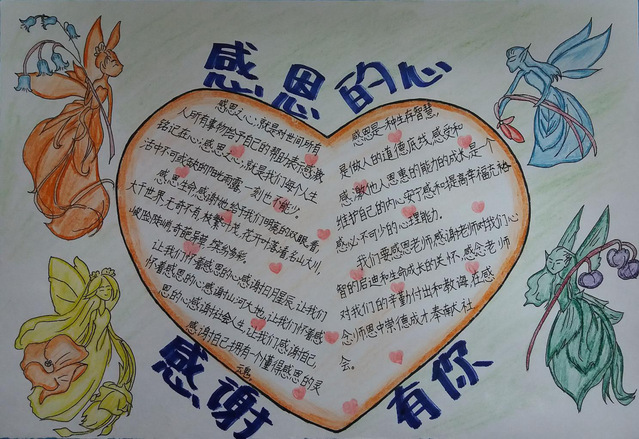 感恩的心
感恩之心,就是对世间所有
人所有事物给予自己的帮助表示感激
铭记在心;感恩之心,就是我们每个人生
活中不可或缺的阳光雨露,一刻也不能少。
感恩生命感谢她给于我们明亮的双眼看
大千世界,无奇不有,枝繁叶茂,花开叶落,看名山大川,
峻险陡峭,奇葩异草,缤纷多彩。
让我们怀着感恩的心,感谢日月星辰,让我们
怀着感恩的心感谢山河大地,让我们怀着感
恩的心感谢社会人生,让我们感谢自己,
感谢自己拥有一个懂得感恩的灵
感恩是一种生存智慧,
是做人的道德底线,感受和
感激他人恩惠的能力的成长是一个
维护自己的内心安宁感和提高幸福充裕
感必不可少的心理能力。
我们要感恩老师,感谢老师对我们心
智的启迪和生命成长的关怀,感念老师
对我们的辛勤付出和教诲,在感
念师恩中学德成才奉献社
会。
感谢
有你